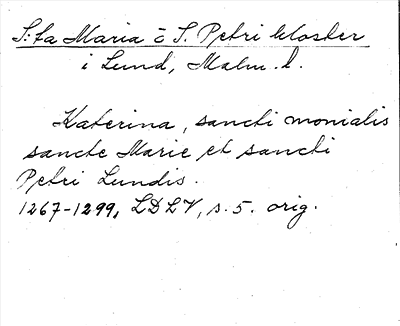 S:ta Maria o S. Petri kloster
i Lund, Malm. l.
Katerina, sancti monialis
sancte Marie et sancti
Petri Lundis.
1267-1299, LDLV, s. 5. orig.